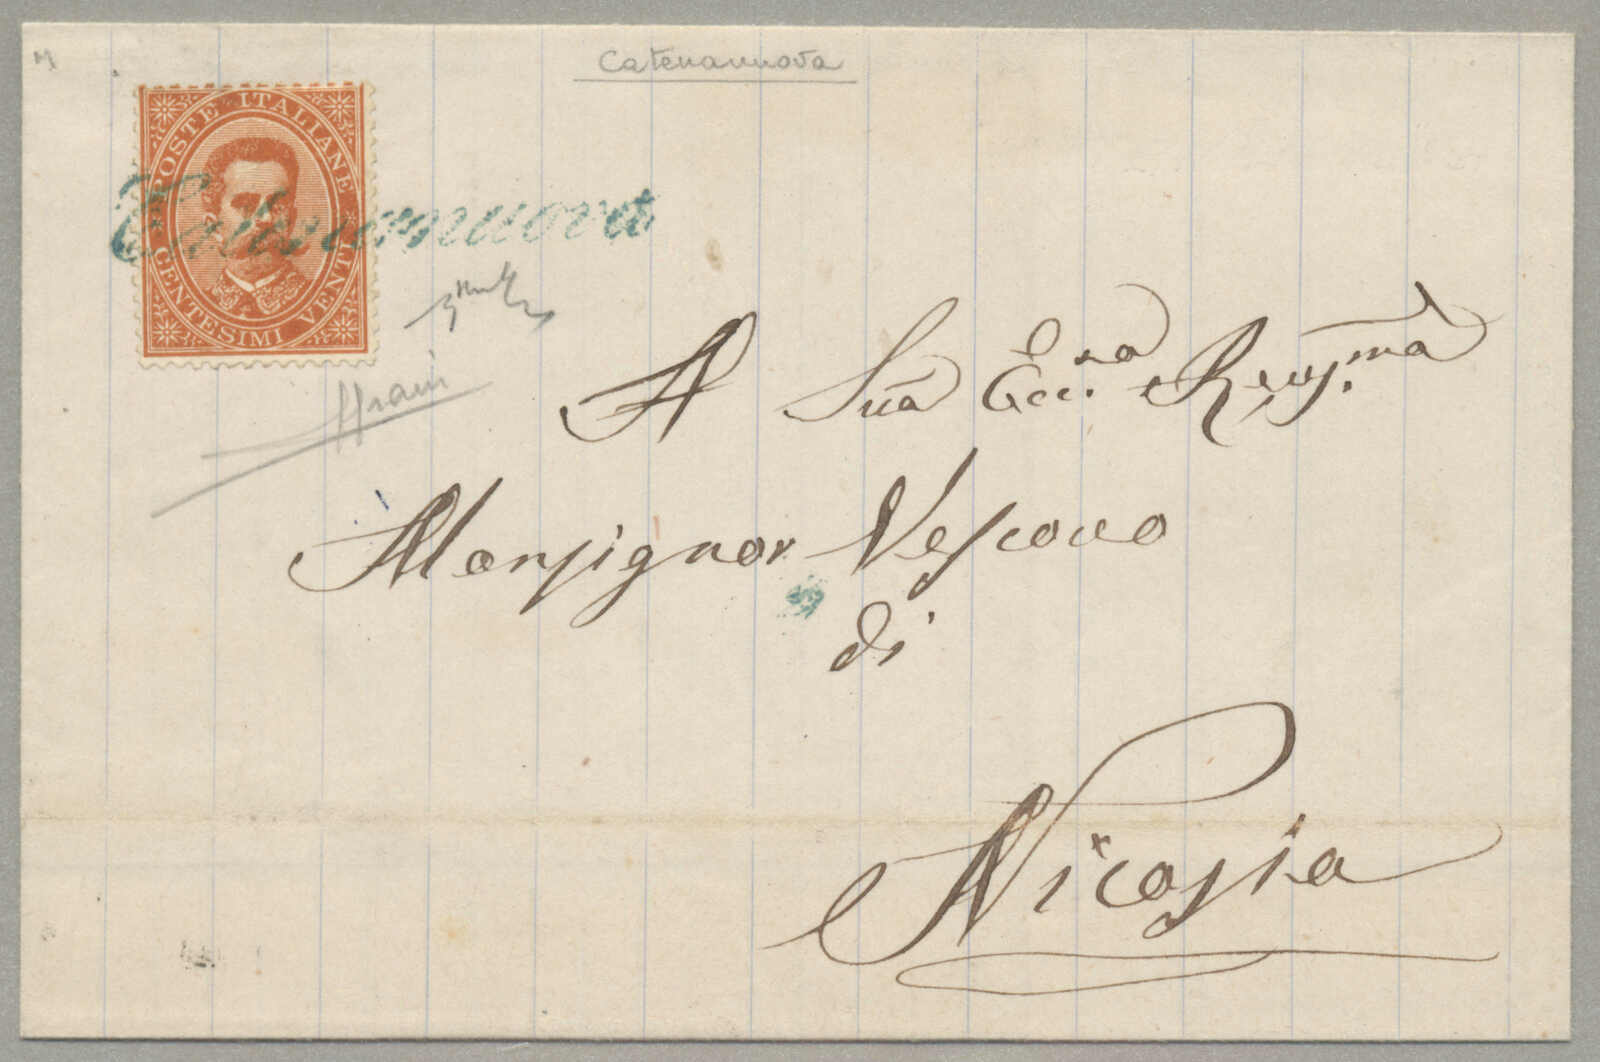 Catenannova
POSTE ITALIANE
CENTESIMI VENTI
Catenanuova
A Sua Ecc.za Rev.ma
Monsignor Vescovo
di
Nicosia